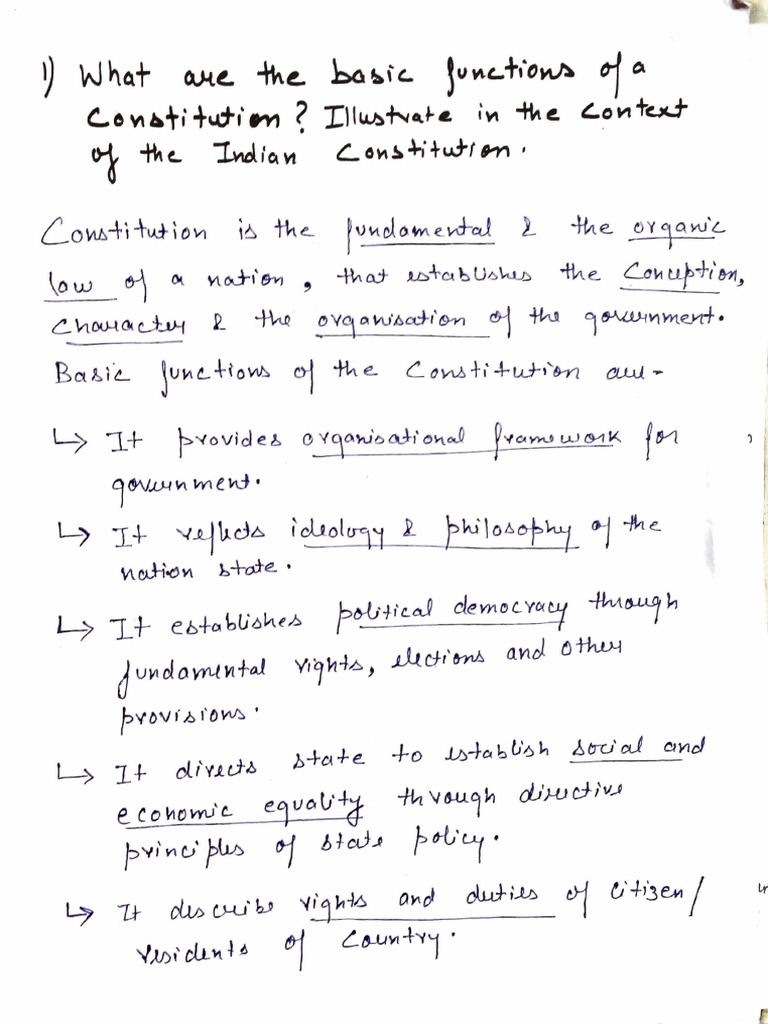 1) What are the basic functions of a
Constitution? Illustrate in the context
of the Indian Constitution.
Constitution is the fundamental & the organic
law of a nation, that establishes the Conception,
Character & the organisation of the government.
Basic functions of the Constitution are-
↳ It provides organisational framework for
government.
↳ It reflects ideology & philosophy of the
nation state.
↳ It establishes political democracy through
fundamental rights, elections and other
provisions.
↳ It directs state to establish social and
economic equality through directive
principles of state policy.
↳ It describe rights and duties of citizen/
residents of Country.